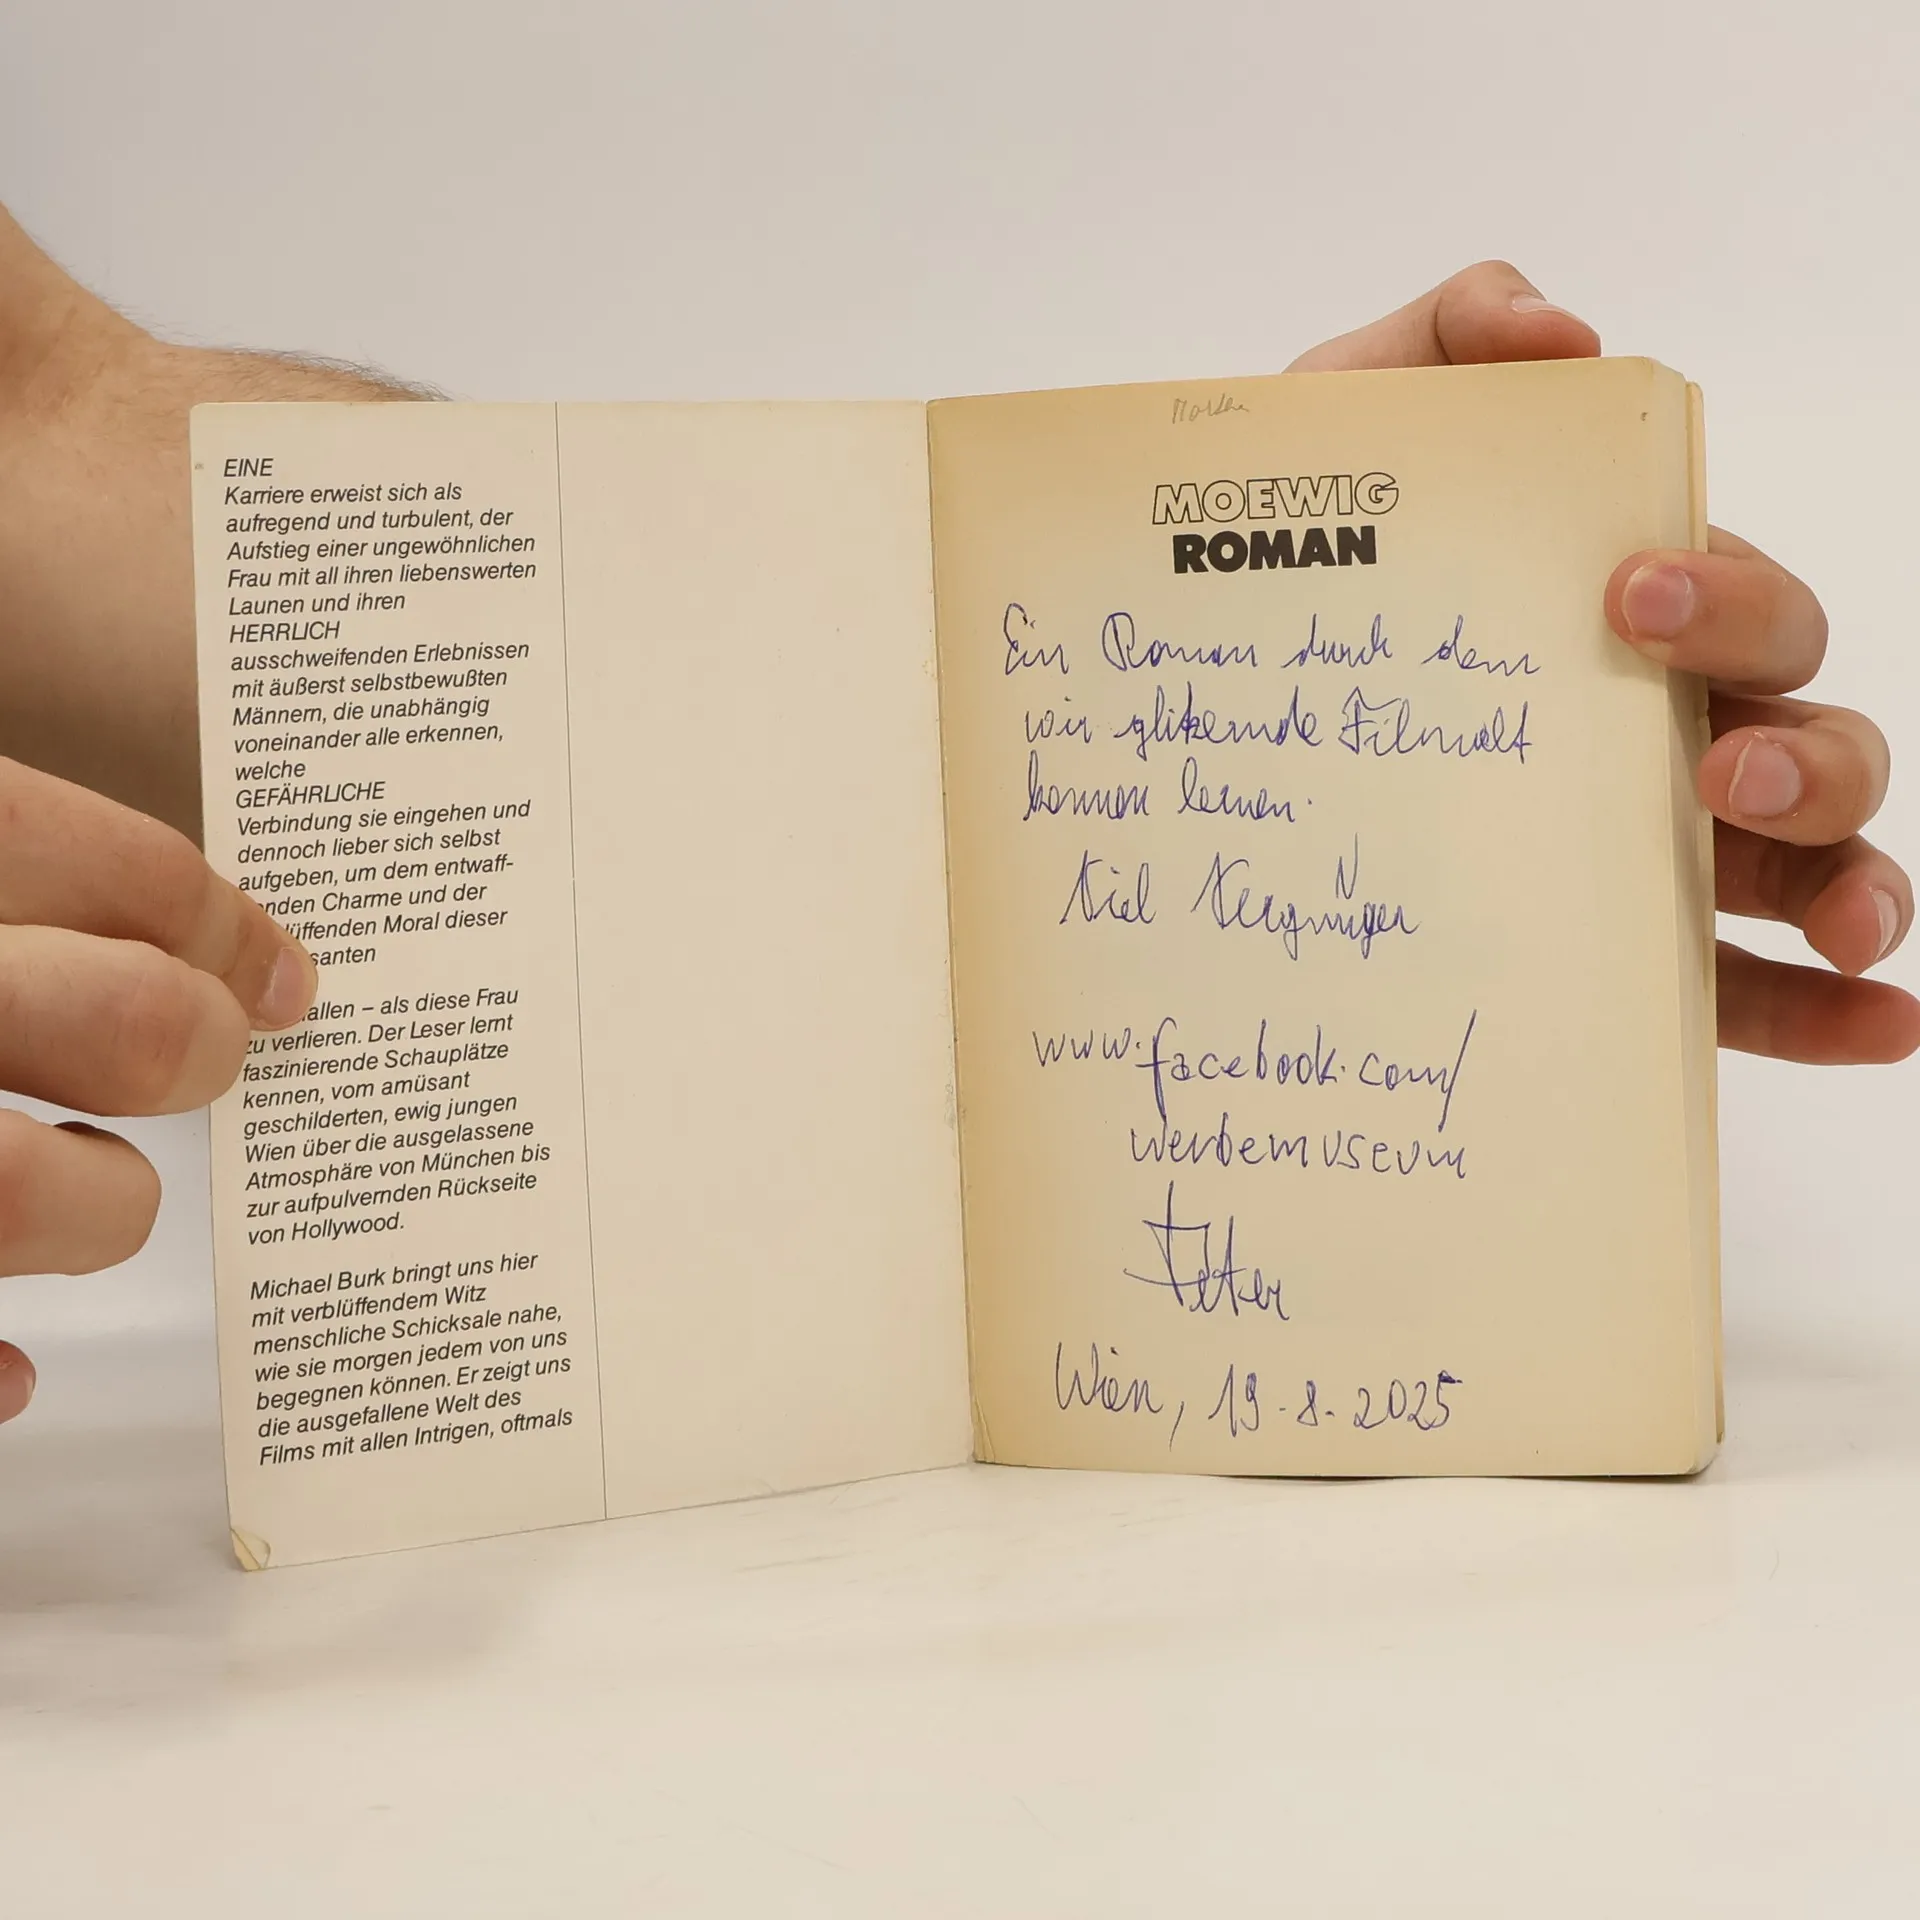 EINE
Karriere erweist sich als
aufregend und turbulent, der
Aufstieg einer ungewöhnlichen
Frau mit all ihren liebenswerten
Launen und ihren
HERRLICH
ausschweifenden Erlebnissen
mit äußerst selbstbewußten
Männern, die unabhängig
voneinander alle erkennen,
welche
GEFÄHRLICHE
Verbindung sie eingehen und
dennoch lieber sich selbst
aufgeben, um dem entwaff-
nden Charme und der
lüffenden Moral dieser
santen
allen – als diese Frau
zu verlieren. Der Leser lernt
faszinierende Schauplätze
kennen, vom amüsant
geschilderten, ewig jungen
Wien über die ausgelassene
Atmosphäre von München bis
zur aufpulvernden Rückseite
von Hollywood.
Michael Burk bringt uns hier
mit verblüffendem Witz
menschliche Schicksale nahe,
wie sie morgen jedem von uns
begegnen können. Er zeigt uns
die ausgefallene Welt des
Films mit allen Intrigen, oftmals
MOEWIG
ROMAN
Ein Roman durch dem
wir glitzernde Filmwelt
kennen lernen.
Viel Vergnügen
www.facebook.com/
werbemuseum
Peter
Wien, 19.8.2025